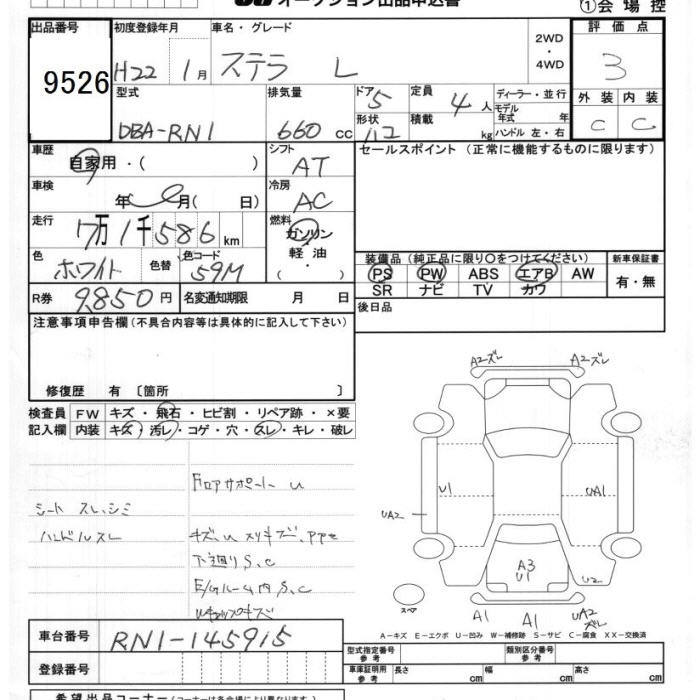 オークション出品申込書 ①会場控
出品番号 初度登録年月 車名・グレード 評価点
9526 H22 1月 ステラ L 2WD・4WD 3
型式 排気量 ドア形状 定員 ディーラー・並行 外装 内装
DBA-RN1 660cc 5 4人 モデル年式 年 C C
積載 kg ハンドル 左・右
車歴 シフト セールスポイント(正常に機能するものに限ります)
自家用・( ) AT
車検 冷房
年 月( 日) AC
走行 燃料
7万1千586km ガソリン
軽油
・( )
色 色替 色コード
ホワイト 59M
装備品(純正品に限り○をつけてください) 新車保証書
PS PW ABS エアB AW 有・無
SR ナビ TV カワ
R券 9850円 名変通知期限 月 日
後日品
注意事項申告欄(不具合内容等は具体的に記入して下さい)
修復歴 有 〔箇所 〕
検査員 FW キズ・飛石・ヒビ割・リペア跡・×要
記入欄 内装 キズ・汚レ・コゲ・穴・スレ・キレ・破レ
フロアサポート U
シート スレ、シミ
ハンドルスレ
下廻りS、C
E/Gルーム内S、C
A2ズレ A2ズレ
U1 UA1
UA2
A3
U1 U2
スペア
A1 A1 UA2
ズレ
A−キズ E−エクボ U−凹み W−補修跡 S−サビ C−腐食 XX−交換済
車台番号 RN1-145915
型式指定番号 参考 類別区分番号 参考
登録番号
車庫証明用 参考 長さ cm 幅 cm 高さ cm
希望出品コーナー(コーナーは各会場により異なります)